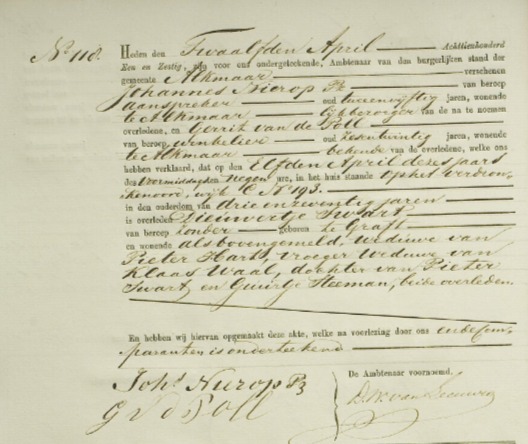 No 118.
Heden den Twaalfden April Achttienhonderd
Een en Zestig, zijn voor ons ondergeteekende, Ambtenaar van den burgerlijken stand der
gemeente Alkmaar verschenen
Johannes Nierop Pz van beroep
aanspreker oud tweeenvijftig jaren, wonende
te Alkmaar lijkbezorger van de na te noemen
overledene, en Gerrit van de Poll
van beroep winkelier oud zesentwintig jaren, wonende
te Alkmaar bekende van de overledene, welke ons
hebben verklaard, dat op den Elfden April dezes jaars
des voormiddags negen ure, in het huis staande op het verdron-
kenoord, wijk C No 193.
in den ouderdom van drieenzeventig jaren
is overleden Dieuwertje Swart
van beroep zonder geboren te Graft
en wonende als bovengemeld, weduwe van
Pieter Hart, vroeger weduwe van
Klaas Waal, dochter van Pieter
Swart en Guurtje Steeman, beide overleden.
En hebben wij hiervan opgemaakt deze akte, welke na voorlezing door ons en de Com-
paranten is onderteekend
De Ambtenaar voornoemd.
Johs Nierop Pz
G v d Poll